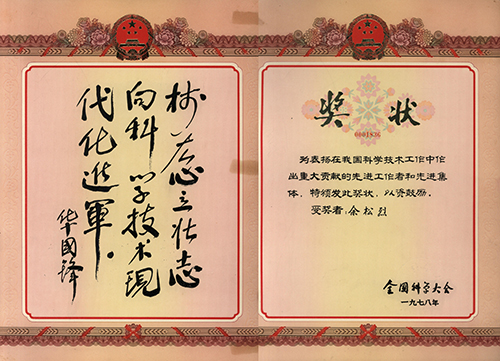 树雄心立壮志
向科学技术现
代化进军。
华国锋
奖状
0001836
为表扬在我国科学技术工作中作
出重大贡献的先进工作者和先进集
体，特颁发此奖状，以资鼓励。
受奖者：余松烈
全国科学大会
一九七八年